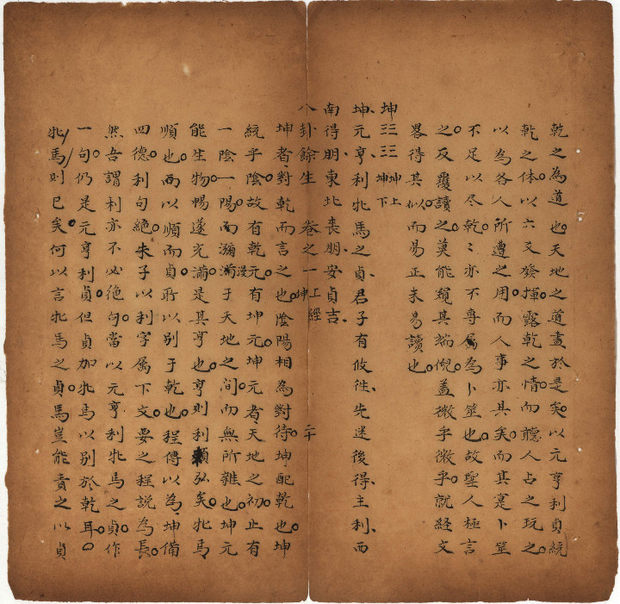 乾之為道也天地之道盡於是矣以元亨利貞統
乾之体以六爻發揮露乾之情而聽人占之玩之
以為各人所遭之用而人事亦具矣而其寔卜筮
不足以尽乾〻亦不專屬為卜筮也故聖人極言
之反覆讀之莫能窺其端倪蓋微乎微乎就經文
畧得其似而易正未易讀也
坤☷☷坤上坤下
坤元亨利牝馬之貞君子有攸往先迷後得主利西
南得朋東北喪朋安貞吉
八卦餘生 卷之一 上經 坤 二十
坤者對乾而言之也陰陽相為對待坤配乾也坤
統乎陰故有乾元有坤元坤元者天地之初止有
一陰一陽而瀰漫滿于天地之間而無所雜也坤元
能生物暢遂充滿是其亨也亨則利弘矣牝馬
順也而以順而貞所以別于乾也程傳以為坤備
四德利句絕朱子以利字屬下文要之程說為長
然吾謂利亦不必絕句當以元亨利牝馬之貞作
一句仍是元亨利貞但貞加牝馬以別於乾耳
牝馬則已矣何以言牝馬之貞馬豈能責之以貞